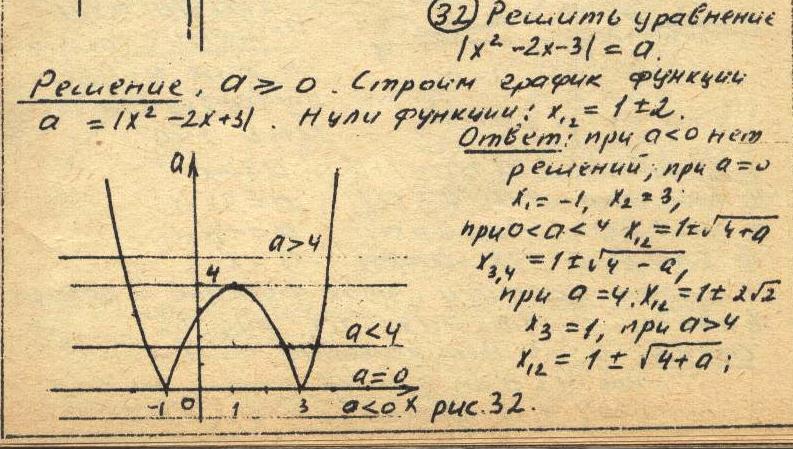 32 Решить уравнение
|x² -2x-3| = a.
Решение, a ⩾ 0. Строим график функции
a = |x² -2x+3|. Нули функции: x₁₂ = 1 ± 2.
Ответ: при a<0 нет
решений; при a=0
x₁ = -1, x₂ = 3;
при 0<a<4 x₁₂ = 1±√4+a
x₃,₄ = 1±√4 - a,
при a = 4, x₁₂ = 1± 2√2
x₃ = 1, при a>4
x₁₂ = 1 ± √4+a;
a
a>4
4
a<4
a=0
-1 0 1 3 a<0 x
рис. 32.